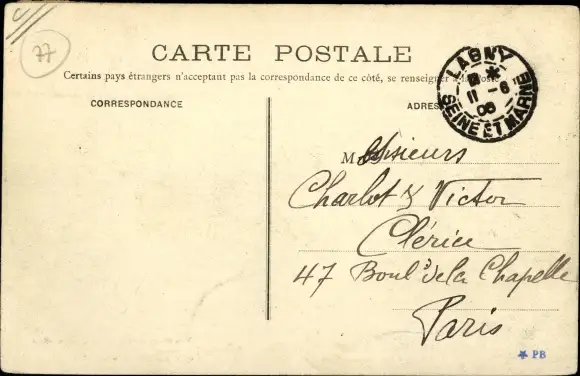 77
CARTE POSTALE
Certains pays étrangers n'acceptant pas la correspondance de ce côté, se renseigner à la Poste
CORRESPONDANCE
ADRES
LAGNY
11 - 6
06
SEINE ET MARNE
Messieurs
Charlot & Victor
Clérice
47 Boul d de la Chapelle
Paris
* PB